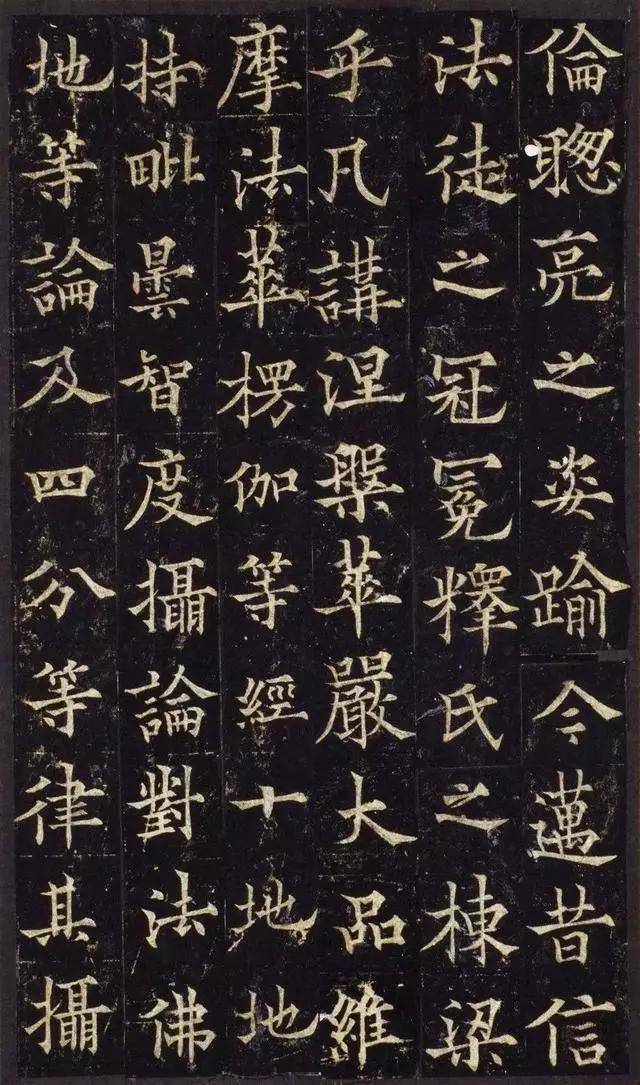 倫聦亮之姿踰今邁昔信
法徒之冠冕釋氏之棟梁
乎凡講涅槃華嚴大品維
摩法華楞伽等經十地地
持毗曇智度攝論對法佛
地等論及四分等律其攝